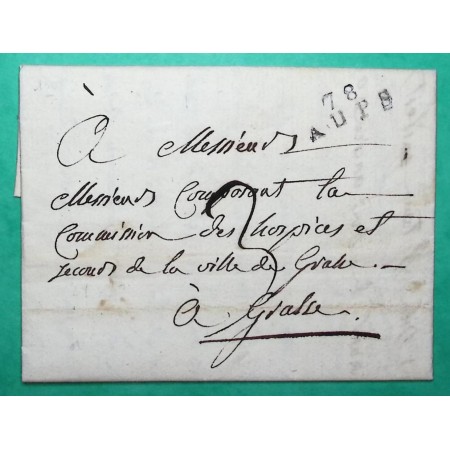 78
AUPS
À Messieurs
Messieurs Composant la
Commission des hospices et
secours de la ville de Grasse.
3
à Grasse.